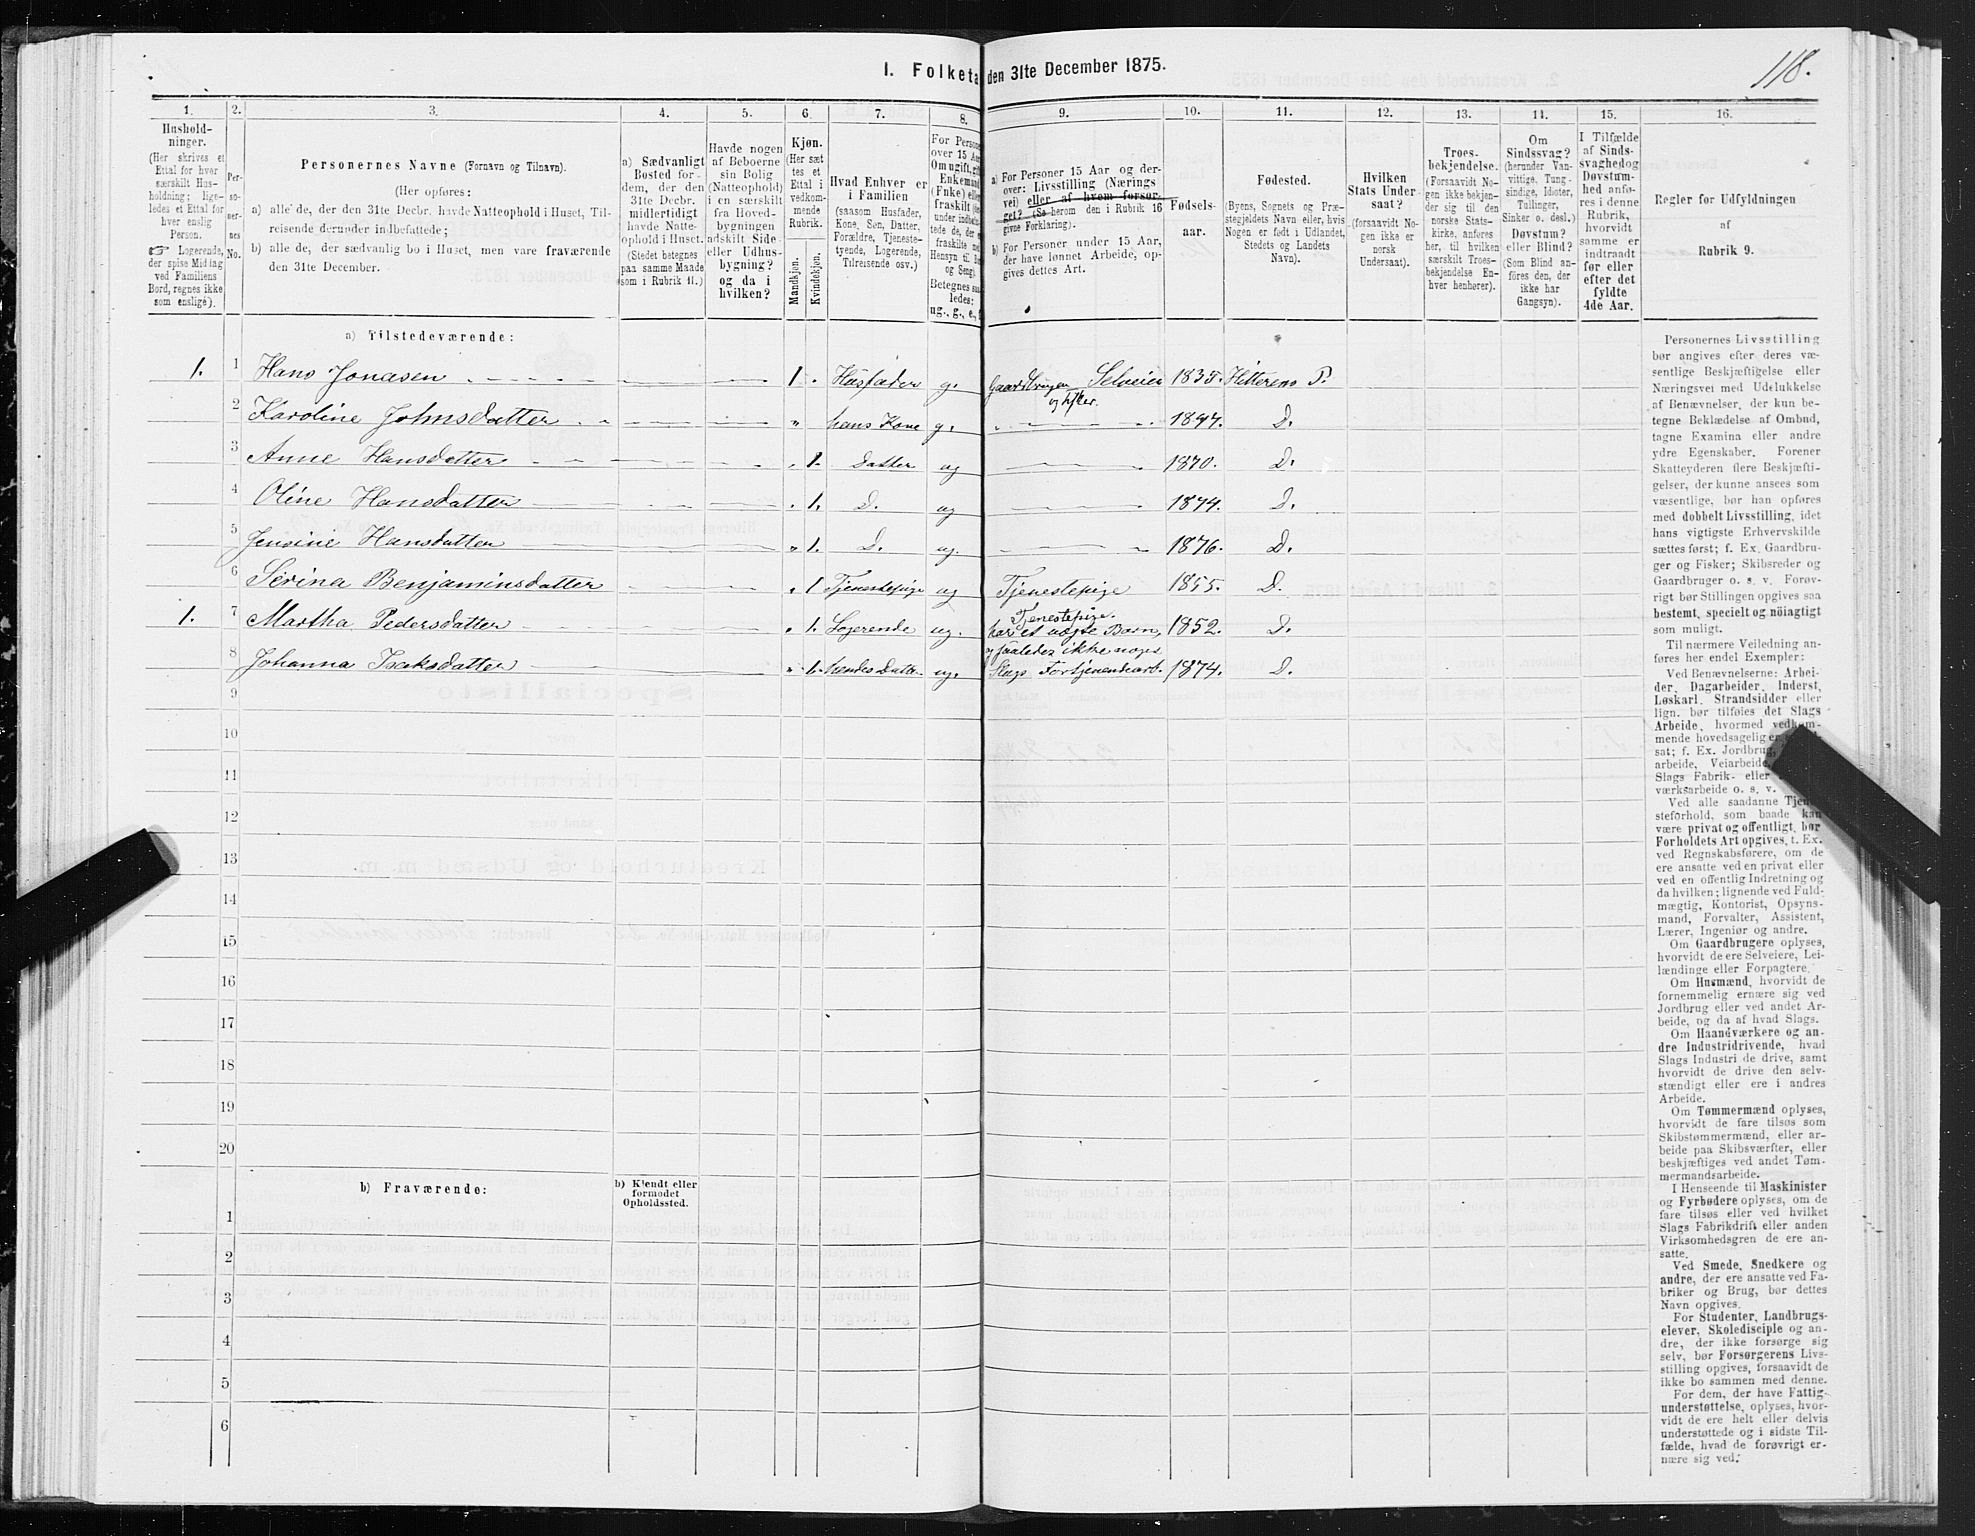 118.
1. Folketa den 31te December 1875.
1.
2.
3.
4.
5.
6.
7.
8.
9.
10.
11.
12.
13.
14.
15.
16.
Hushold-
ninger.
(Her skrives et
Ettal for hver
særskilt Hus-
holdning; lige-
ledes et Ettal for
hver enslig
Person.
☞ Logerende,
der spise Middag
ved Familiens
Bord, regnes ikke
som enslige).
Per-
so-
ner-
nes
No.
Personernes Navne (Fornavn og Tilnavn).
(Her opføres:
a) alle de, der den 31te Decbr. havde Natteophold i Huset, Til-
reisende derunder indbefattede;
b) alle de, der sædvanlig bo i Huset, men vare fraværende
den 31te December.
a) Sædvanligt
Bosted for-
dem, der den
31te Decbr.
midlertidigt
havde Natte-
ophold i Huset.
(Stedet betegnes
paa samme Maade
som i Rubrik 11.)
Havde nogen
af Beboerne
sin Bolig
(Natteophold)
i en særskilt
fra Hoved-
bygningen
adskilt Side-
eller Udhus-
bygning?
og da i
hvilken?
Kjøn.
(Her sæt
tes et
Ettal i
vedkom-
mende
Rubrik.
Mandkjøn.
Kvindekjøn.
Hvad Enhver er
i Familien
(saasom Husfader,
Kone, Søn, Datter,
Forældre, Tjeneste-
tyende, Logerende,
Tilreisende osv.)
For Person
over 15 Aa
Om ugift, gif
Enkemand
(Fnke) elle
fraskilt (
under indbe
tede de, der
fraskilte me
Hensyn til B
og Seng).
Betegnes saa
ledes:
ug., g., e., f
a) For Personer 15 Aar og der-
over: Livsstilling (Nærings
vei) eller af hvem forsør-
get? (Se herom den i Rubrik 16
givne Forklaring).
b) For Personer under 15 Aar,
der have lønnet Arbeide, op-
gives dettes Art.
Fødsels-
aar.
Fødested.
(Byens, Sognets og Præ-
stegjeldets Navn eller, hvis
Nogen er født i Udlandet,
Stedets og Landets
Navn).
Hvilken
Stats Under-
saat?
(forsaavidt No-
gen ikke er
norsk
Undersaat).
Troes-
bekjendelse.
(Forsaavidt No-
gen ikke bekjen-
der sig til den
norske Stats-
kirke, anføres
her, til hvilken
særskilt Troes-
bekjendelse En-
hver henhører).
Om
Sindssvag?
(herunder Van-
vittige, Tung-
sindige, Idioter,
Tullinger,
Sinker o. desl.)
Døvstum?
eller Blind?
(Som Blind an-
føres den, der
ikke har
Gangsyn).
I Tilfælde
af Sinds-
svaghed og
Døvstum-
hed anfø-
res i denne
Rubrik,
hvorvidt
samme er
indtraadt
før eller
efter det
fyldte
4de Aar.
Regler for Udfyldningen
af
Rubrik 9.
a) Tilstedeværende:
1. 1 Hans Jonasen 1. Husfader g. Gaardbruger Selveier og Fisker. 1835. Hitterens P.
2 Karoline Johnsdatter " hans Kone g. 1847. D.
3 Anne Hansdatter 1. Datter ug 1870. D.
4 Oline Hansdatter 1. D. ug 1874. D.
5 Jensine Hansdatter 1. D. ug. 1876. D.
6 Serina Benjaminsdatter 1 Tjenestepige ug Tjenestepige 1855. D.
1. 7 Martha Pedersdatter 1. Logerende ug. Tjenestepige. har et uægte Barn, 1852. D.
og saaledes ikke noget
8 Johanna Isaksdatter 1. hendes Datter ug. Slags Fortjenende arb. 1874. D.
9
10
11
12
13
14
15
16
17
18
19
20
b) Fraværende:
b) Kjendt eller
formodet
Opholdssted.
1
2
3
4
5
6
Personernes Livsstilling
bør angives efter deres væ-
sentlige Beskjæftigelse eller
Næringsvei med Udelukkelse
af Benævnelser, der kun be-
tegne Beklædelse af Ombud,
tagne Examina eller andre
ydre Egenskaber. Forener
Skatteyderen flere Beskjæfti-
gelser, der kunne ansees som
væsentlige, bør han opføres
med dobbelt Livsstilling, idet
hans vigtigste Erhvervskilde
sættes først; f. Ex. Gaardbru-
ger og Fisker; Skibsreder og
Gaardbruger o. s. v. Forøv-
rigt bør Stillingen opgives saa
bestemt, specielt og nøiagtigt
som muligt.
Til nærmere Veiledning an-
føres her endel Exempler:
Ved Benævnelserne: Arbei-
der, Dagarbeider, Inderst,
Løskarl, Strandsidder eller
lign. bør tilføies det Slags
Arbeide, hvormed vedkom-
mende hovedsagelig er
sat; f. Ex. Jordbrug,
arbeide, Veiarbeide,
Slags Fabrik- eller
værksarbeide o. s. v.
Ved alle saadanne Tjene-
steforhold, som baade kan
være privat og offentligt, bør
Forholdets Art opgives, t. Ex.
ved Regnskabsførere, om de
ere ansatte ved en privat eller
ved en offentlig Indretning og
da hvilken; lignende ved Fuld-
mægtig, Kontorist, Opsyns-
mand, Forvalter, Assistent,
Lærer, Ingeniør og andre.
Om Gaardbrugere oplyses,
hvorvidt de ere Selveiere, Lei-
lændinge eller Forpagtere.
Om Husmænd, hvorvidt de
fornemmelig ernære sig ved
Jordbrug eller ved andet Ar-
beide, og da af hvad Slags.
Om Haandværkere og an-
dre Industridrivende, hvad
Slags Industri de drive, samt
hvorvidt de drive den selv-
stændigt eller ere i andres
Arbeide.
Om Tømmermænd oplyses,
hvorvidt de fare tilsøs som
Skibstømmermænd, eller ar-
beide paa Skibsværfter, eller
beskjæftiges ved andet Tøm-
mermandsarbeide.
I Henseende til Maskinister
og Fyrbødere oplyses, om de
fare tilsøs eller ved hvilket
Slags Fabrikdrift eller anden
Virksomhedsgren de ere an-
satte.
Ved Smede, Snedkere og
andre, der ere ansatte ved Fa-
briker og Brug, bør dettes
Navn opgives.
For Studenter, Landbrugs-
elever, Skoledisciple og an-
dre, der ikke forsørge sig
selv, bør Forsørgerens Livs-
stilling opgives, forsaavidt de
ikke bo sammen med denne.
For dem, der have Fattig-
understøttelse, oplyses, hvor-
vidt de ere helt eller delvis
understøttede og i sidste Til-
fælde, hvad de forøvrigt er-
nære sig ved.